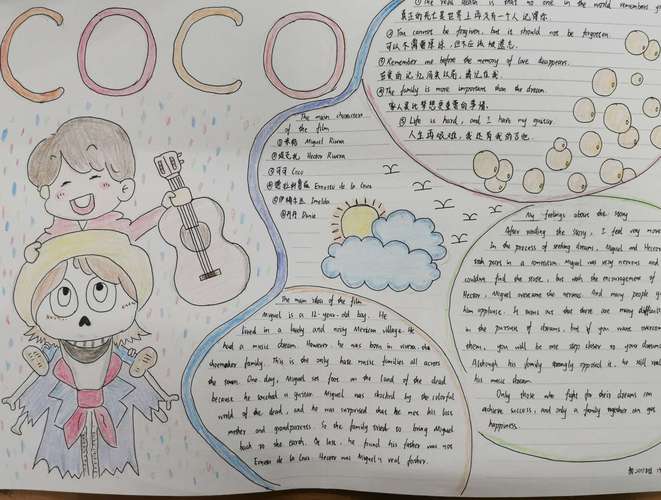 COCO
① The real death is that no one in the world remembers
真正的死亡是世界上再没有一个人记得你.
② You cannot be forgiven, but is should not be forgotten.
可以不需要原谅,但不应该被遗忘.
③ Remember me before the memory of love disappears.
在爱的记忆消失以前,请记住我.
④ The family is more important than the dream.
家人是比梦想更重要的事情.
⑤ Life is hard, and I have my guitar.
人生再艰难,我还有我的吉他.
The main characters
of the film
① 米格 Miguel Rivera
② Hector Rivera
③ 可可 Coco
④ Ernesto de la Cruz
⑤ Imelda
⑥ 丹丹 Dante
The main idea of the film
Miguel is a 12-year-old boy. He
lived in a lively and noisy Mexican village. He
had a music dream. However, he was born in
shoemaker family. This is the only hate music families all across
the town. One day, Miguel set foot on the land of the dead
because he touched a guitar. Miguel was shocked by the colorful
world of the dead, and he was surprised that he met his lost
mother and grandparents. So the family tried to bring Miguel
back to the earth. At last, he found his father was not
Ernesto de la Cruz. Hector was Miguel's real father.
My feelings about the story
After reading the story, I feel very
In the process of seeking dreams, Miguel and Hector
took part in a competition. Miguel was very nervous and
couldn't find the state, but with the encouragement of
Hector, Miguel overcame the nervous. And many people
him applause. It means out that there are many
in the pursuit of dreams, but if you want overcome
them, you will be one step closer to your dreams.
Although his family strongly opposed it, he still
his music dream.
Only those who fight for their dreams can
achieve success, and only a family together can get
happiness.